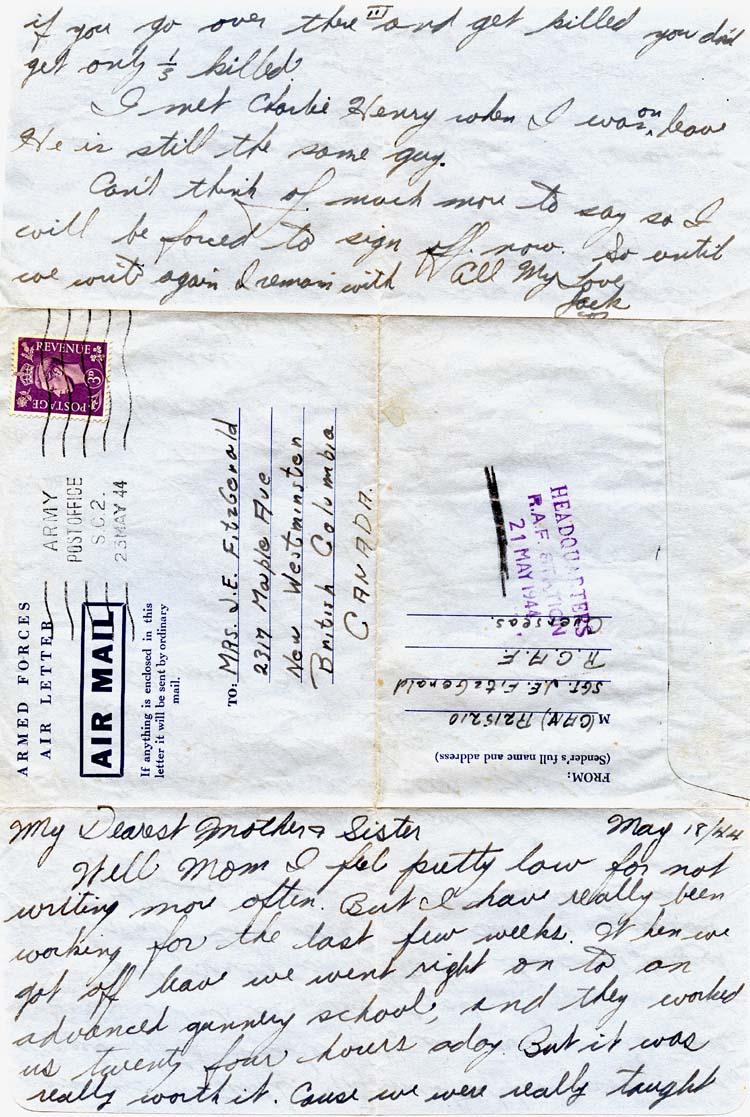 if you go over there and get killed you don't
get only ⅓ killed.
I met Charlie Henry when I was on leave
He is still the same guy.
Can't think of much more to say so I
will be forced to sign off now. So until
we write again I remain with All My Love
Jack
REVENUE
3D
POSTAGE
ARMY
POST OFFICE
S.C.2.
23 MAY 44
ARMED FORCES
AIR LETTER
AIR MAIL
If anything is enclosed in this
letter it will be sent by ordinary
mail.
TO: MRS. J.E. FitzGerald
2317 Maple Ave
New Westminster
British Columbia
CANADA.
HEADQUARTERS
R.A.F. STATION
21 MAY 1944
FROM:
(Sender's full name and address)
(CAN) R215210
SGT. J.E. FitzGerald
R.C.A.F.
Overseas.
My Dearest Mother & Sister May 18/44
Well Mom I feel pretty low for not
writing more often. But I have really been
working for the last few weeks. When we
got off leave we went right on to an
advanced gunnery school, and they worked
us twenty four hours a day. But it was
really worth it. Cause we were really taught